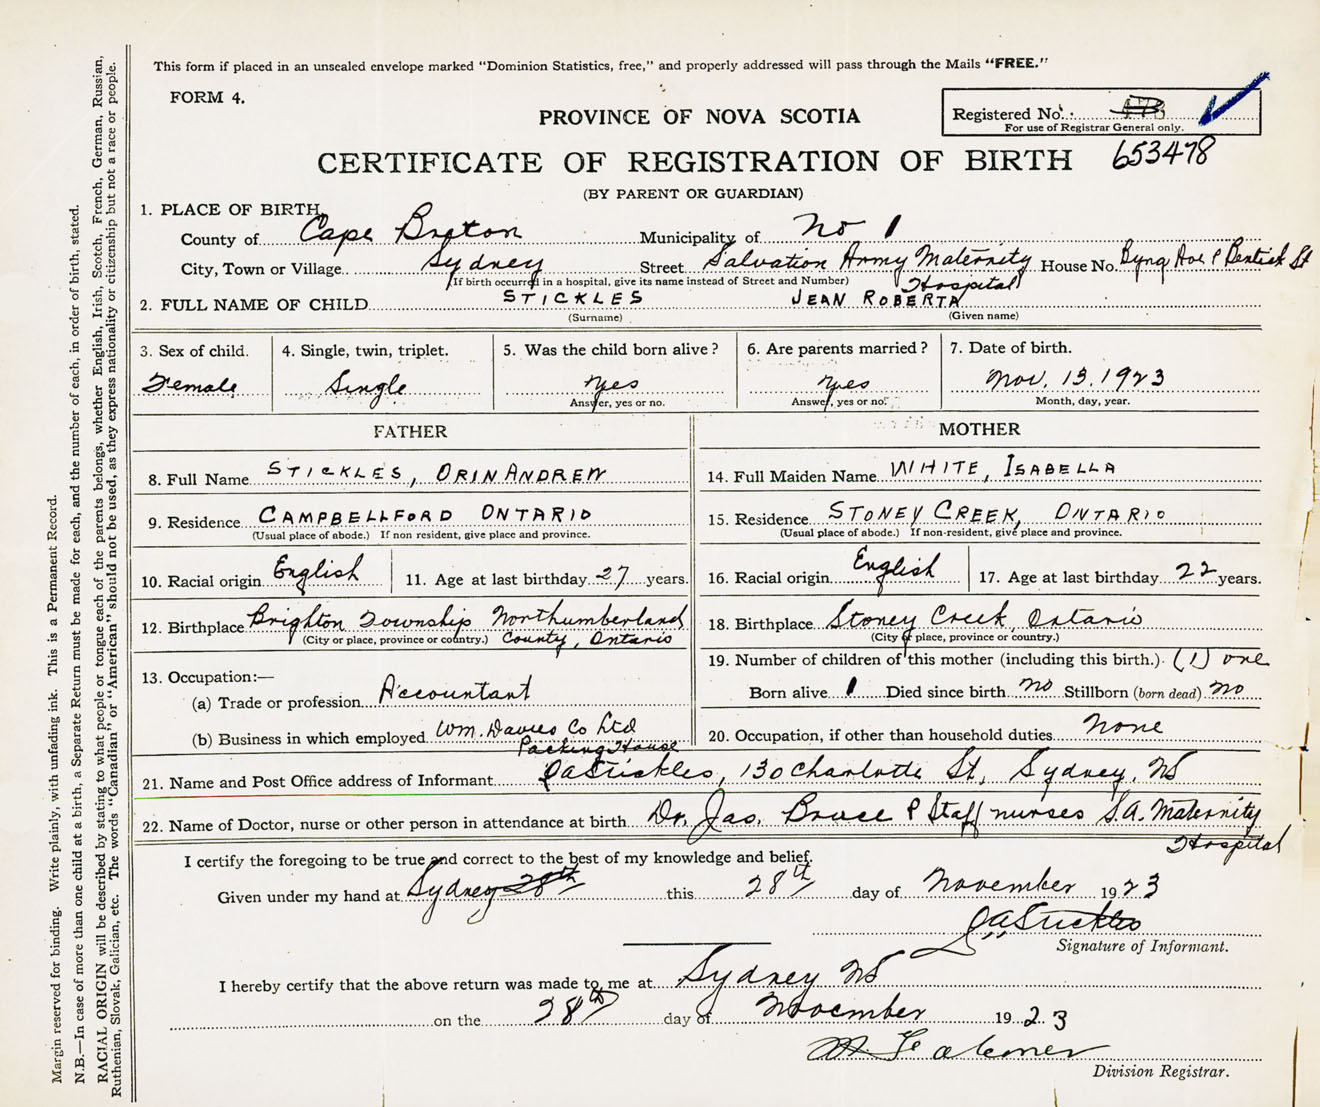 This form if placed in an unsealed envelope marked "Dominion Statistics, free," and properly addressed will pass through the Mails "FREE."
FORM 4.
PROVINCE OF NOVA SCOTIA
Registered No.
For use of Registrar General only.
CERTIFICATE OF REGISTRATION OF BIRTH 653478
(BY PARENT OR GUARDIAN)
1. PLACE OF BIRTH
County of Cape Breton Municipality of No 1
City, Town or Village Sydney Street Salvation Army Maternity Hospital House No. Byng Ave & Bentick St
(If birth occurred in a hospital, give its name instead of Street and Number)
2. FULL NAME OF CHILD STICKLES JEAN ROBERTA
(Surname) (Given name)
3. Sex of child. 4. Single, twin, triplet. 5. Was the child born alive? 6. Are parents married? 7. Date of birth.
Female Single Yes Yes Nov. 13. 1923
Answer, yes or no. Answer, yes or no. Month, day, year.
FATHER
8. Full Name STICKLES, ORIN ANDREW
9. Residence CAMPBELLFORD ONTARIO
(Usual place of abode.) If non resident, give place and province.
10. Racial origin English 11. Age at last birthday 27 years.
12. Birthplace Brighton Township Northumberland
(City or place, province or country.) County, Ontario
13. Occupation:—
(a) Trade or profession Accountant
(b) Business in which employed Wm. Davies Co Ltd
Packing House
MOTHER
14. Full Maiden Name WHITE, ISABELLA
15. Residence STONEY CREEK, ONTARIO
(Usual place of abode.) If non-resident, give place and province.
16. Racial origin English 17. Age at last birthday 22 years.
18. Birthplace Stoney Creek, Ontario
(City or place, province or country.)
19. Number of children of this mother (including this birth.) (1) one
Born alive 1 Died since birth no Stillborn (born dead) no
20. Occupation, if other than household duties None
21. Name and Post Office address of Informant OAStickles, 130 Charlotte St, Sydney, NS
22. Name of Doctor, nurse or other person in attendance at birth Dr. Jas. Bruce & Staff nurses S.A. Maternity
Hospital
I certify the foregoing to be true and correct to the best of my knowledge and belief.
Given under my hand at Sydney 28th this 28th day of November 1923
OAStickles
Signature of Informant.
I hereby certify that the above return was made to me at Sydney NS
on the 28th day of November 1923
Division Registrar.
Margin reserved for binding. Write plainly, with unfading ink. This is a Permanent Record.
N.B.—In case of more than one child at a birth, a Separate Return must be made for each, and the number of each, in order of birth, stated.
RACIAL ORIGIN will be described by stating to what people or tongue each of the parents belongs, whether English, Irish, Scotch, French, German, Russian,
Ruthenian, Slovak, Galician, etc. The words "Canadian" or "American" should not be used, as they express nationality or citizenship but not a race or people.